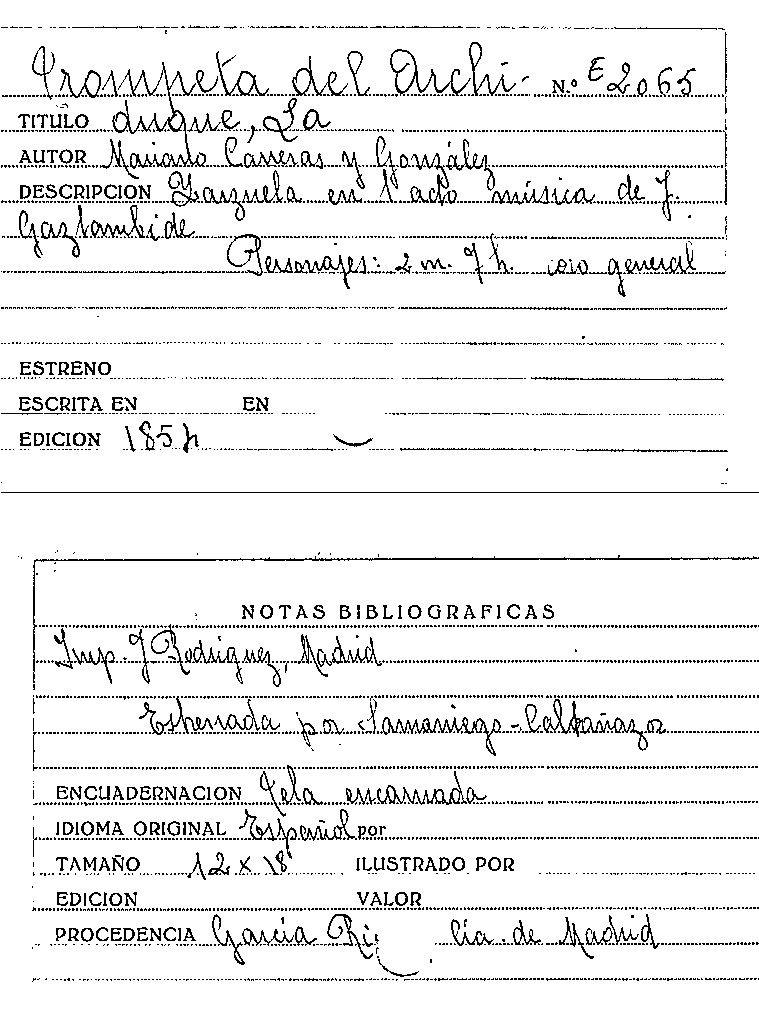 Trompeta del Archi- N.º E 2065
TITULO duque, La
AUTOR Mariano Carreras y González
DESCRIPCION Zarzuela en 1 acto música de J.
Gaztambide
Personajes: 2 m. 7 h. coro general
ESTRENO
ESCRITA EN EN
EDICION
NOTAS BIBLIOGRAFICAS
Imp. J Rodriguez, Madrid
Estrenada por Samaniego - Caltañazor
ENCUADERNACION Tela encarnada
IDIOMA ORIGINAL Español por
TAMAÑO 12 x 18 ILUSTRADO POR
EDICION VALOR
PROCEDENCIA García Ri cía. de Madrid